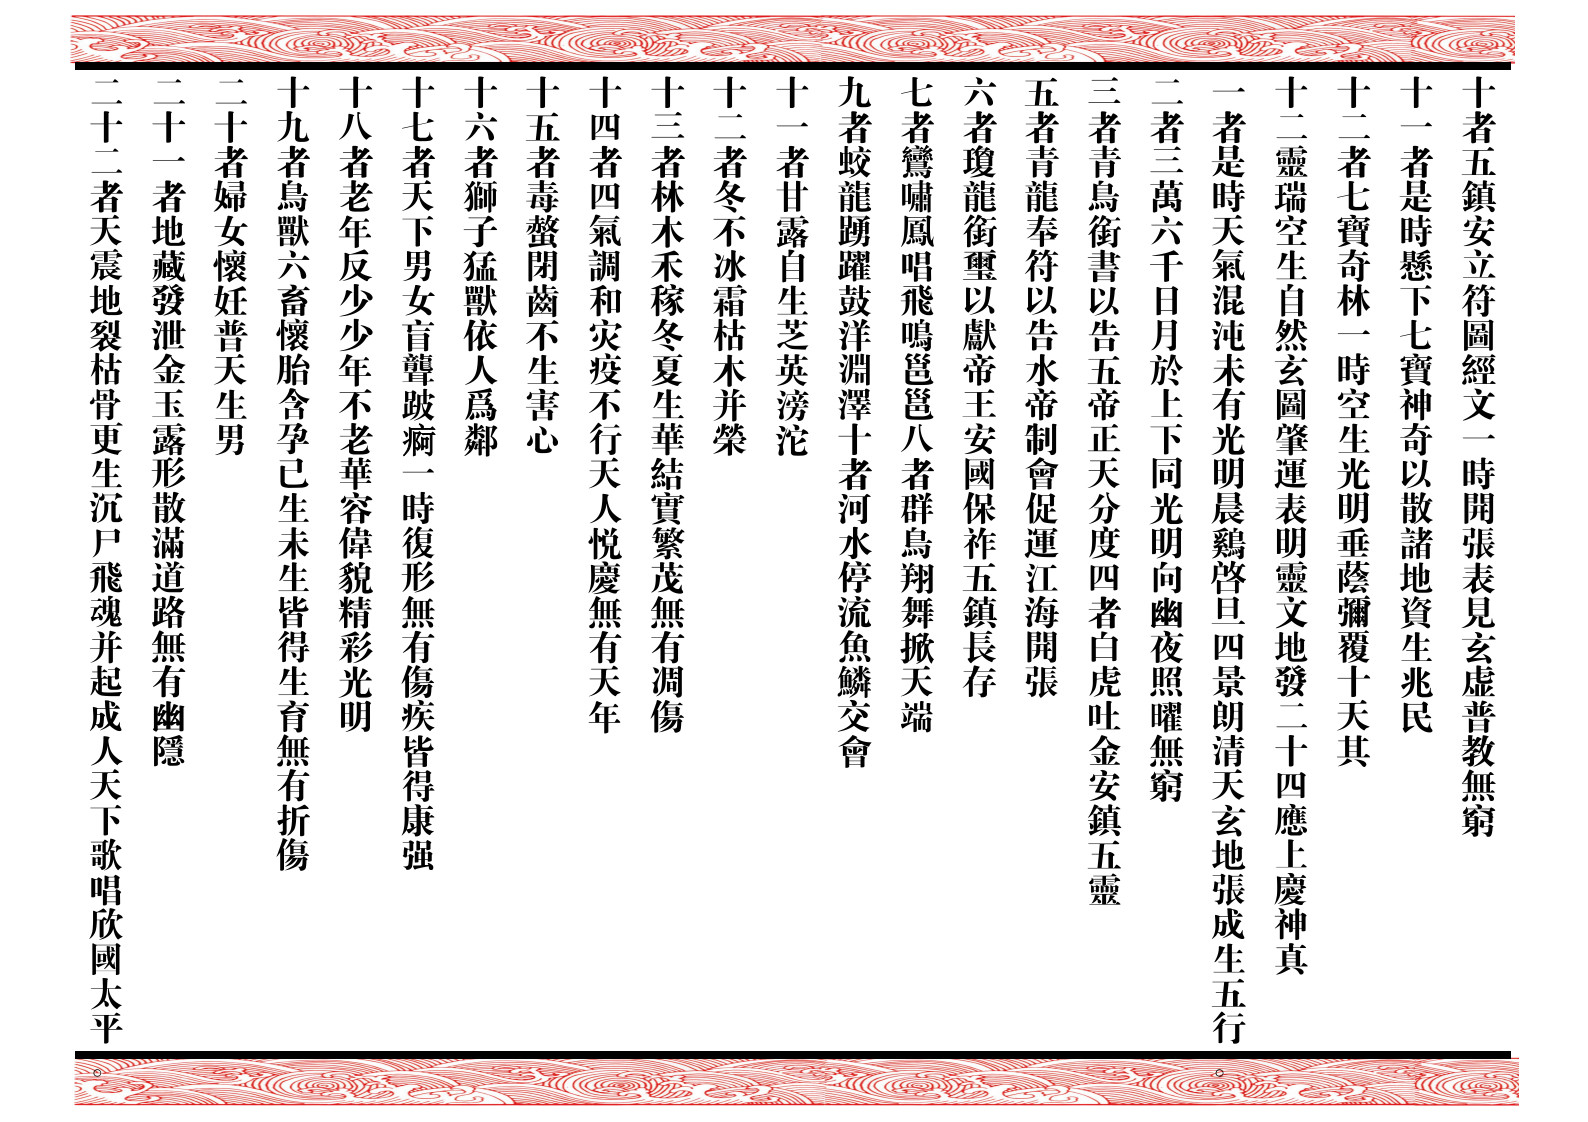 十者五鎮安立符圖經文一時開張表見玄虛普教無窮
十一者是時懸下七寶神奇以散諸地資生兆民
十二者七寶奇林一時空生光明垂蔭彌覆十天其
十二靈瑞空生自然玄圖肇運表明靈文地發二十四應上慶神真
一者是時天氣混沌未有光明晨鷄啓旦四景朗清天玄地張成生五行
二者三萬六千日月於上下同光明向幽夜照曜無窮
三者青鳥銜書以告五帝正天分度四者白虎吐金安鎮五靈
五者青龍奉符以告水帝制會促運江海開張
六者瓊龍銜璽以獻帝王安國保祚五鎮長存
七者鸞嘯鳳唱飛鳴邕邕八者群鳥翔舞掀天端
九者蛟龍踴躍鼓洋淵澤十者河水停流魚鱗交會
十一者甘露自生芝英滂沱
十二者冬不冰霜枯木并榮
十三者林木禾稼冬夏生華結實繁茂無有凋傷
十四者四氣調和灾疫不行天人悦慶無有天年
十五者毒螫閉齒不生害心
十六者獅子猛獸依人爲鄰
十七者天下男女盲聾跛痾一時復形無有傷疾皆得康强
十八者老年反少少年不老華容偉貌精彩光明
十九者鳥獸六畜懷胎含孕已生未生皆得生育無有折傷
二十者婦女懷妊普天生男
二十一者地藏發泄金玉露形散滿道路無有幽隱
二十二者天震地裂枯骨更生沉尸飛魂并起成人天下歌唱欣國太平